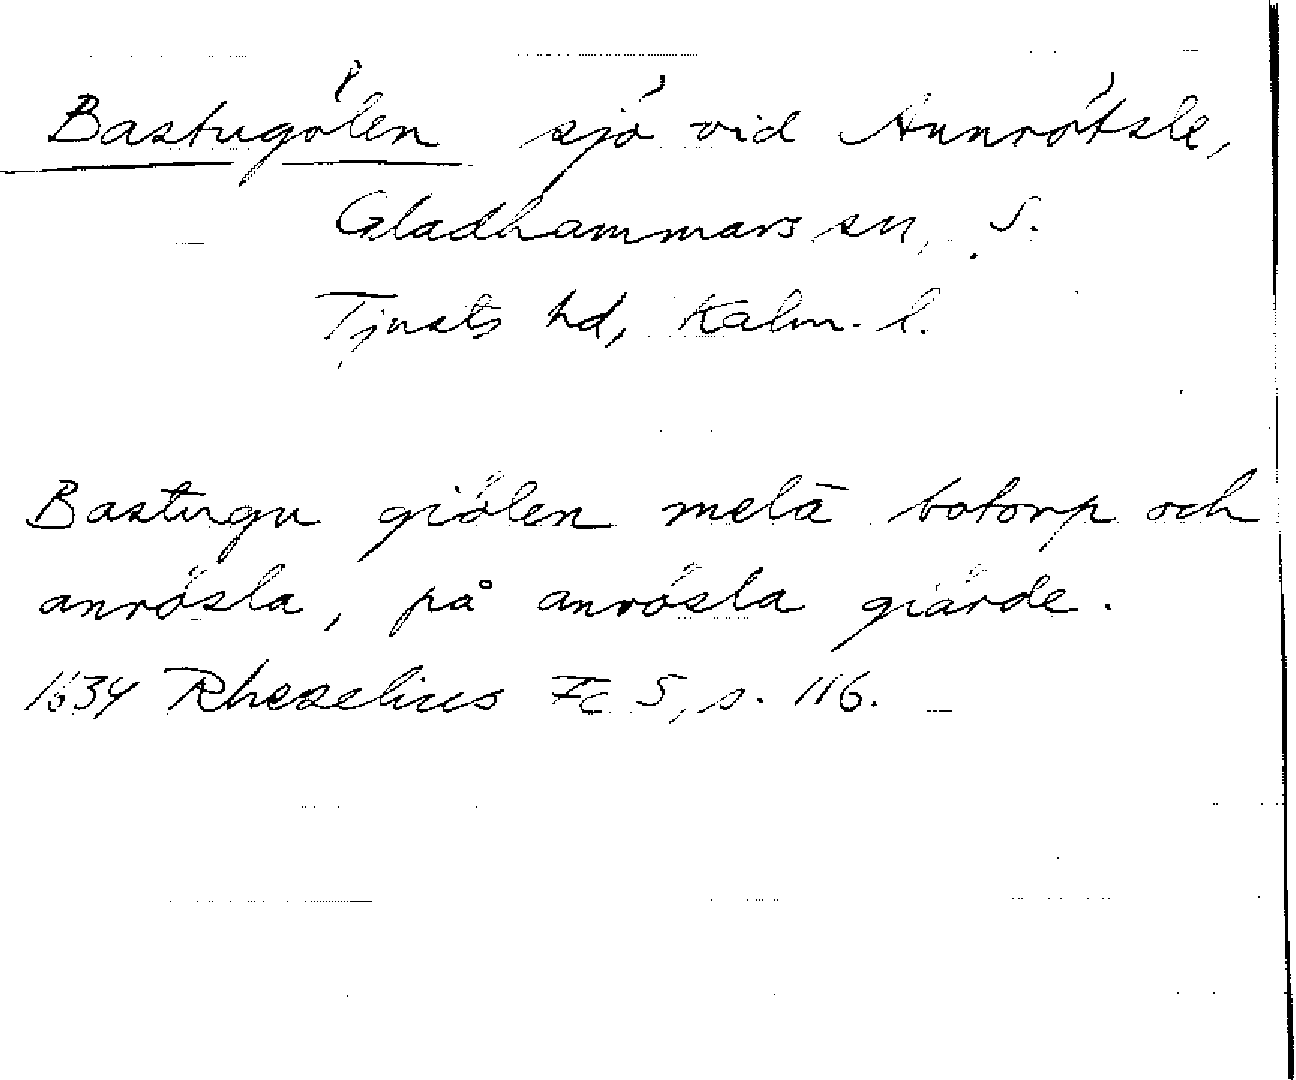 Bastugölen sjö vid Annrötsle,
Gladhammars sn, S.
Tjusts hd, Kalm. l.
Bastugu giölen melā botorp och
anrösla, på anrösla giärde.
1634 Rhezelius Fc 5, s. 116.